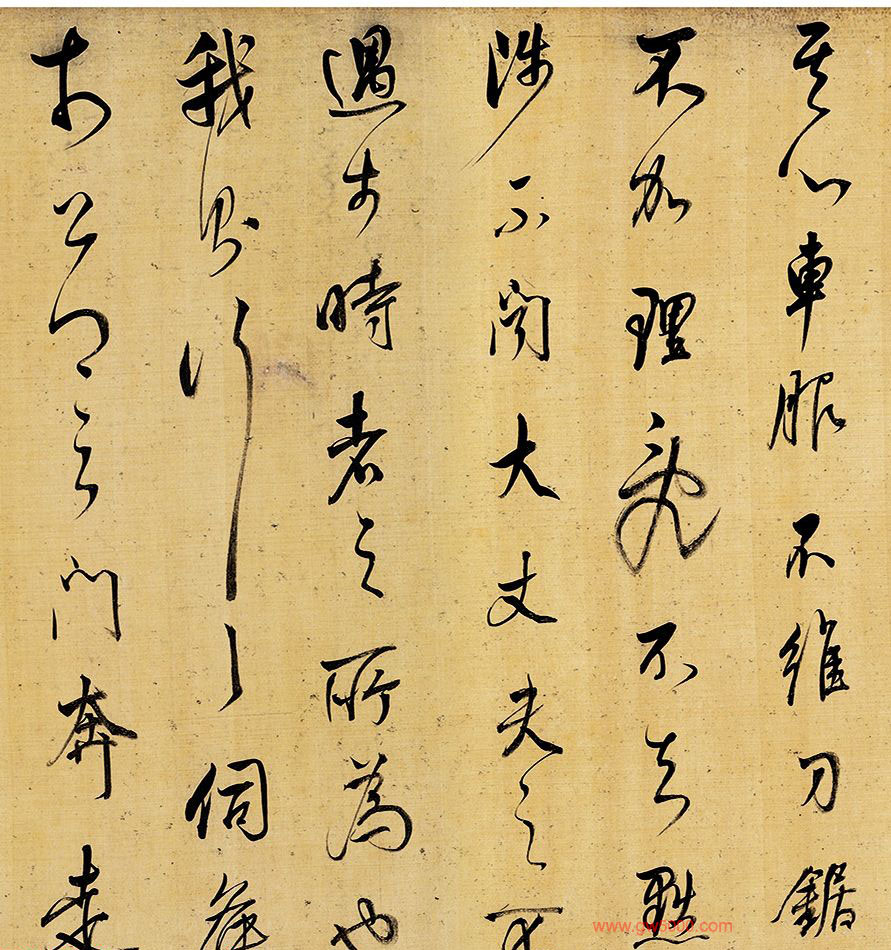 其心車服不維刀鋸
不加理亂不知黜
陟不聞大丈夫之不
遇於時者之所為也
我則行之伺候
於公卿之門奔走